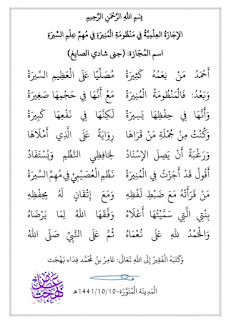 بِسْمِ اللَّهِ الرَّحْمَنِ الرَّحِيمِ
الإِجَازَةُ العِلْمِيَّةُ فِي مَنْظُومَةِ المُنِيرَةِ فِي مُهِمِّ عِلْمِ السِّيرَةِ
اسم المُجَازَة: (جنى شادي الصايغ)
أَحْمَدُ مَنْ نِعَمُهُ كَثِيرَةْ مُصَلِّيًا عَلَى الْعَظِيمِ السِّيرَةْ
وَبَعْدُ: فَالْمَنْظُومَةُ الْمُنِيرَةْ مَعْ أَنَّهَا فِي حَجْمِهَا صَغِيرَةْ
وَأَنَّهَا فِي حِفْظِهَا يَسِيرَةْ لَكِنَّهَا فِي نَفْعِهَا كَبِيرَةْ
وَكُنْتُ مِنْ جُمْلَةِ مَنْ قَرَاهَا رِوَايَةً عَلَى الَّذِي أَمْلَاهَا
وَرَغْبَةً أَنْ يَصِلَ الْإِسْنَادُ لِحَافِظِي النَّظْمِ وَيُسْتَفَادُ
أَقُولُ قَدْ أَجَزْتُ فِي الْمُنِيرَةْ نَظْمِ الْعُصَيْمِيِّ فِي مُهِمِّ السِّيرَةْ
مَنْ قَرَأَتْهُ مَعَ ضَبْطِ لَفْظِهِ وَمَعَ إِتْقَانٍ لَهُ بِحِفْظِهِ
بِنْتِي الَّتِي سَمَّيْتُهَا أَعْلَاهُ وَفَّقَهَا اللهُ لِمَا يَرْضَاهُ
وَالْحَمْدُ للهِ عَلَى نَعْمَاهُ ثُمَّ عَلَى النَّبِيِّ صَلَّى اللهُ
وَكَتَبَهُ الْفَقِيرُ إِلَى اللهِ تَعَالَى: عَامِرُ بْنُ مُحَمَّد فِدَاء بَهْجَت
المَدِينَة المُنَوَّرَة-1441/10/10هـ